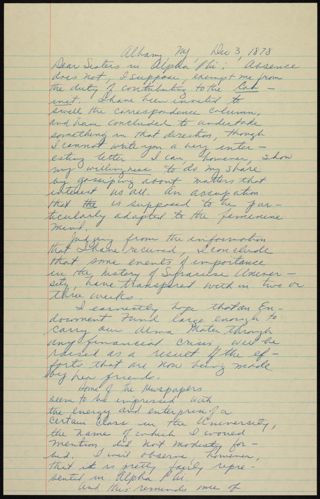 Albany NY Dec 3, 1878
Dear Sisters in Alpha Phi: Absence
does not, I suppose, exempt me from
the duty of contributing to the Cab-
inet. I have been invited to
swell the correspondence column,
and have concluded to undertake
something in that direction, though
I cannot write you a very inter-
esting letter I can, however, show
my willingness to do my share
by gossiping about matters that
interest us all. An occupation
that is supposed to be par-
ticularly adapted to the femenine
mind.
Judging from the information
that I have received, I conclude
that some events of importance
in the history of Syracuse Univer-
sity, have transpired within two or
three weeks.
I earnestly hope that an En-
dowment Fund large enough to
carry our Alma Mater through
any financial crisis, will be
raised as a result of the ef-
forts that are now being made
by her friends.
Some of the Newspapers
seem to be impressed with
the energy and enterprise of a
certain class in the University,
the name of which I would
mention did not modesty for-
bid. I will observe, however,
that it is pretty fairly repre-
sented in Alpha Phi.
And this reminds me of